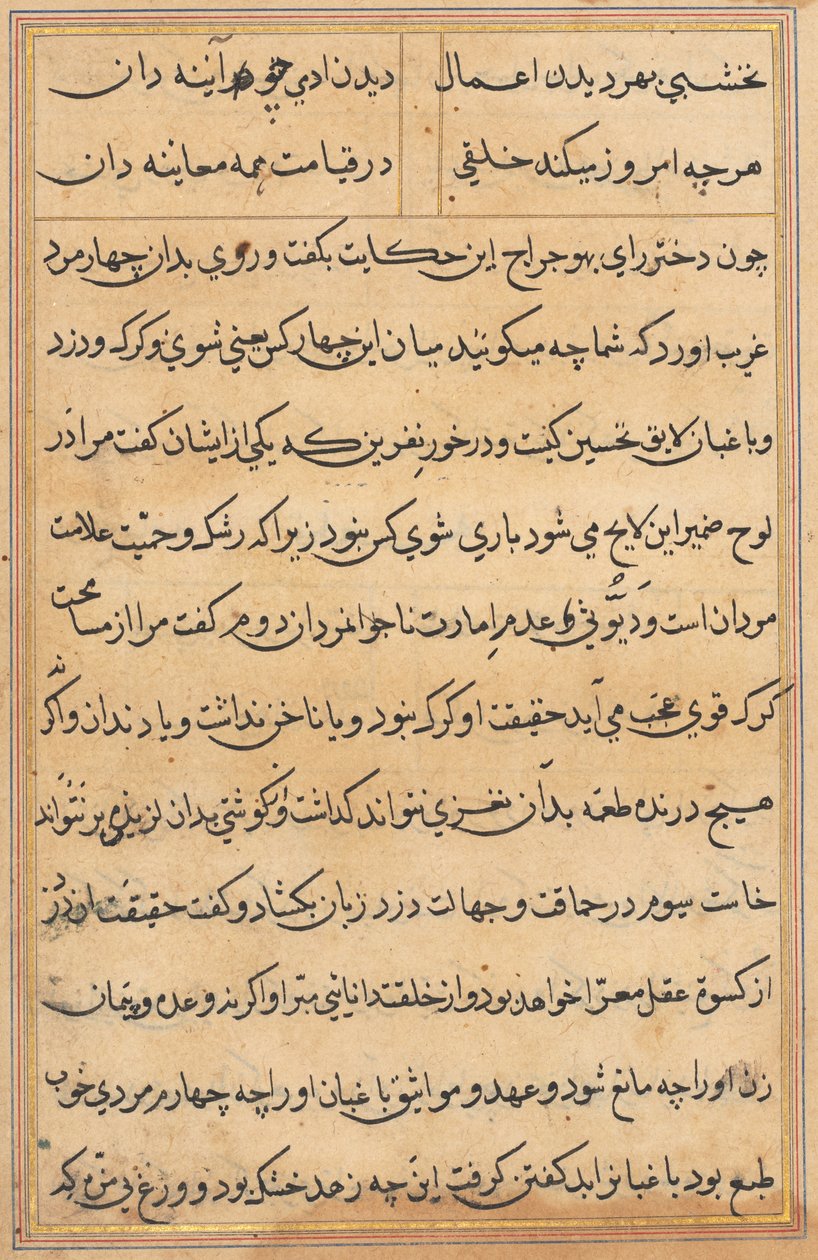 نخشبي بهر ديدن اعمال ديدن ادمي چو آينه دان
هر چه امروز ميكند خلقي در قيامت همه معاينه دان
چون دختر راي بهوجراج اين حكايت بكفت و روي بدان چهار مرد
غريب اورد كه شما چه ميكوئيد ميان اين چهار كس يعني شوي و كرك و دزد
و باغبان لايق تحسين كيست و در خور نفرين كه يكي از ايشان كفت مرا در
لوح ضمير اين لايح مي شود باري شوي كس نبود زيرا كه رشك و حميّت علامت
مردان است و ديّوثي و عدم امارت ناجوانمردان دوم كفت مرا از مسامحت
كرك قوي عجب مي آيد حقيقت او كرك نبود و يا ناخن نداشت و يا دندان و اكرنه
هيچ درنده طعمه بدان نغزي نتواند كذاشت و كوشتي بدان لزيذي بر نتواند
خاست سيوم در حماقت و جهالت دزد زبان بكشاد و كفت حقيقت ان دزد
از كسوة عقل معرّا خواهد بود و از خلقت دانائي مبرّا و اكر نه وعده و پيمان
زن او را چه مانع شود و عهد و مواثيق باغبان او را چه چهارم مردي خوب
طبع بود باغبانرا بد كفتن كرفت اين چه زهد خشك بود و ورع بي مزه كه